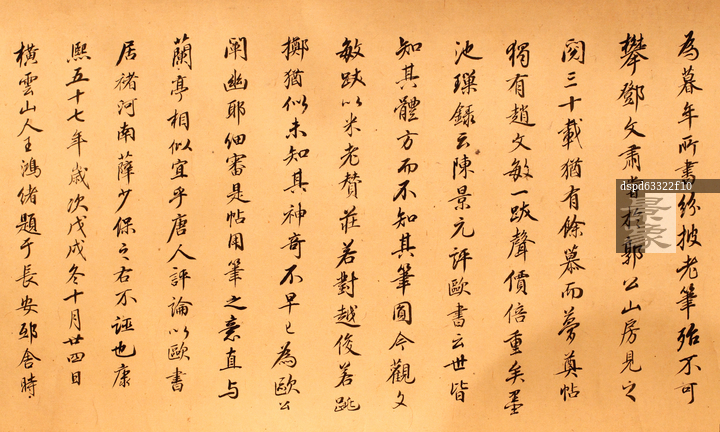 為暮年所書紛披老筆殆不可
攀鄧文肅嘗於郭公山房見之
閱三十載猶有餘慕而夢奠帖
獨有趙文敏一跋聲價倍重矣墨
池璅錄云陳景元評歐書云世皆
知其體方而不知其筆圓今觀文
敏跋以米老贊莊若對越俊若跳
擲猶似未知其神奇不早已為歐公
闡幽耶細審是帖用筆之意直与
蘭亭相似宜乎唐人評論以歐書
居褚河南薛少保之右不誣也康
熙五十七年歲次戊戌冬十月廿四日
橫雲山人王鴻緒題于長安邸舍時
dspd63322f10
景象